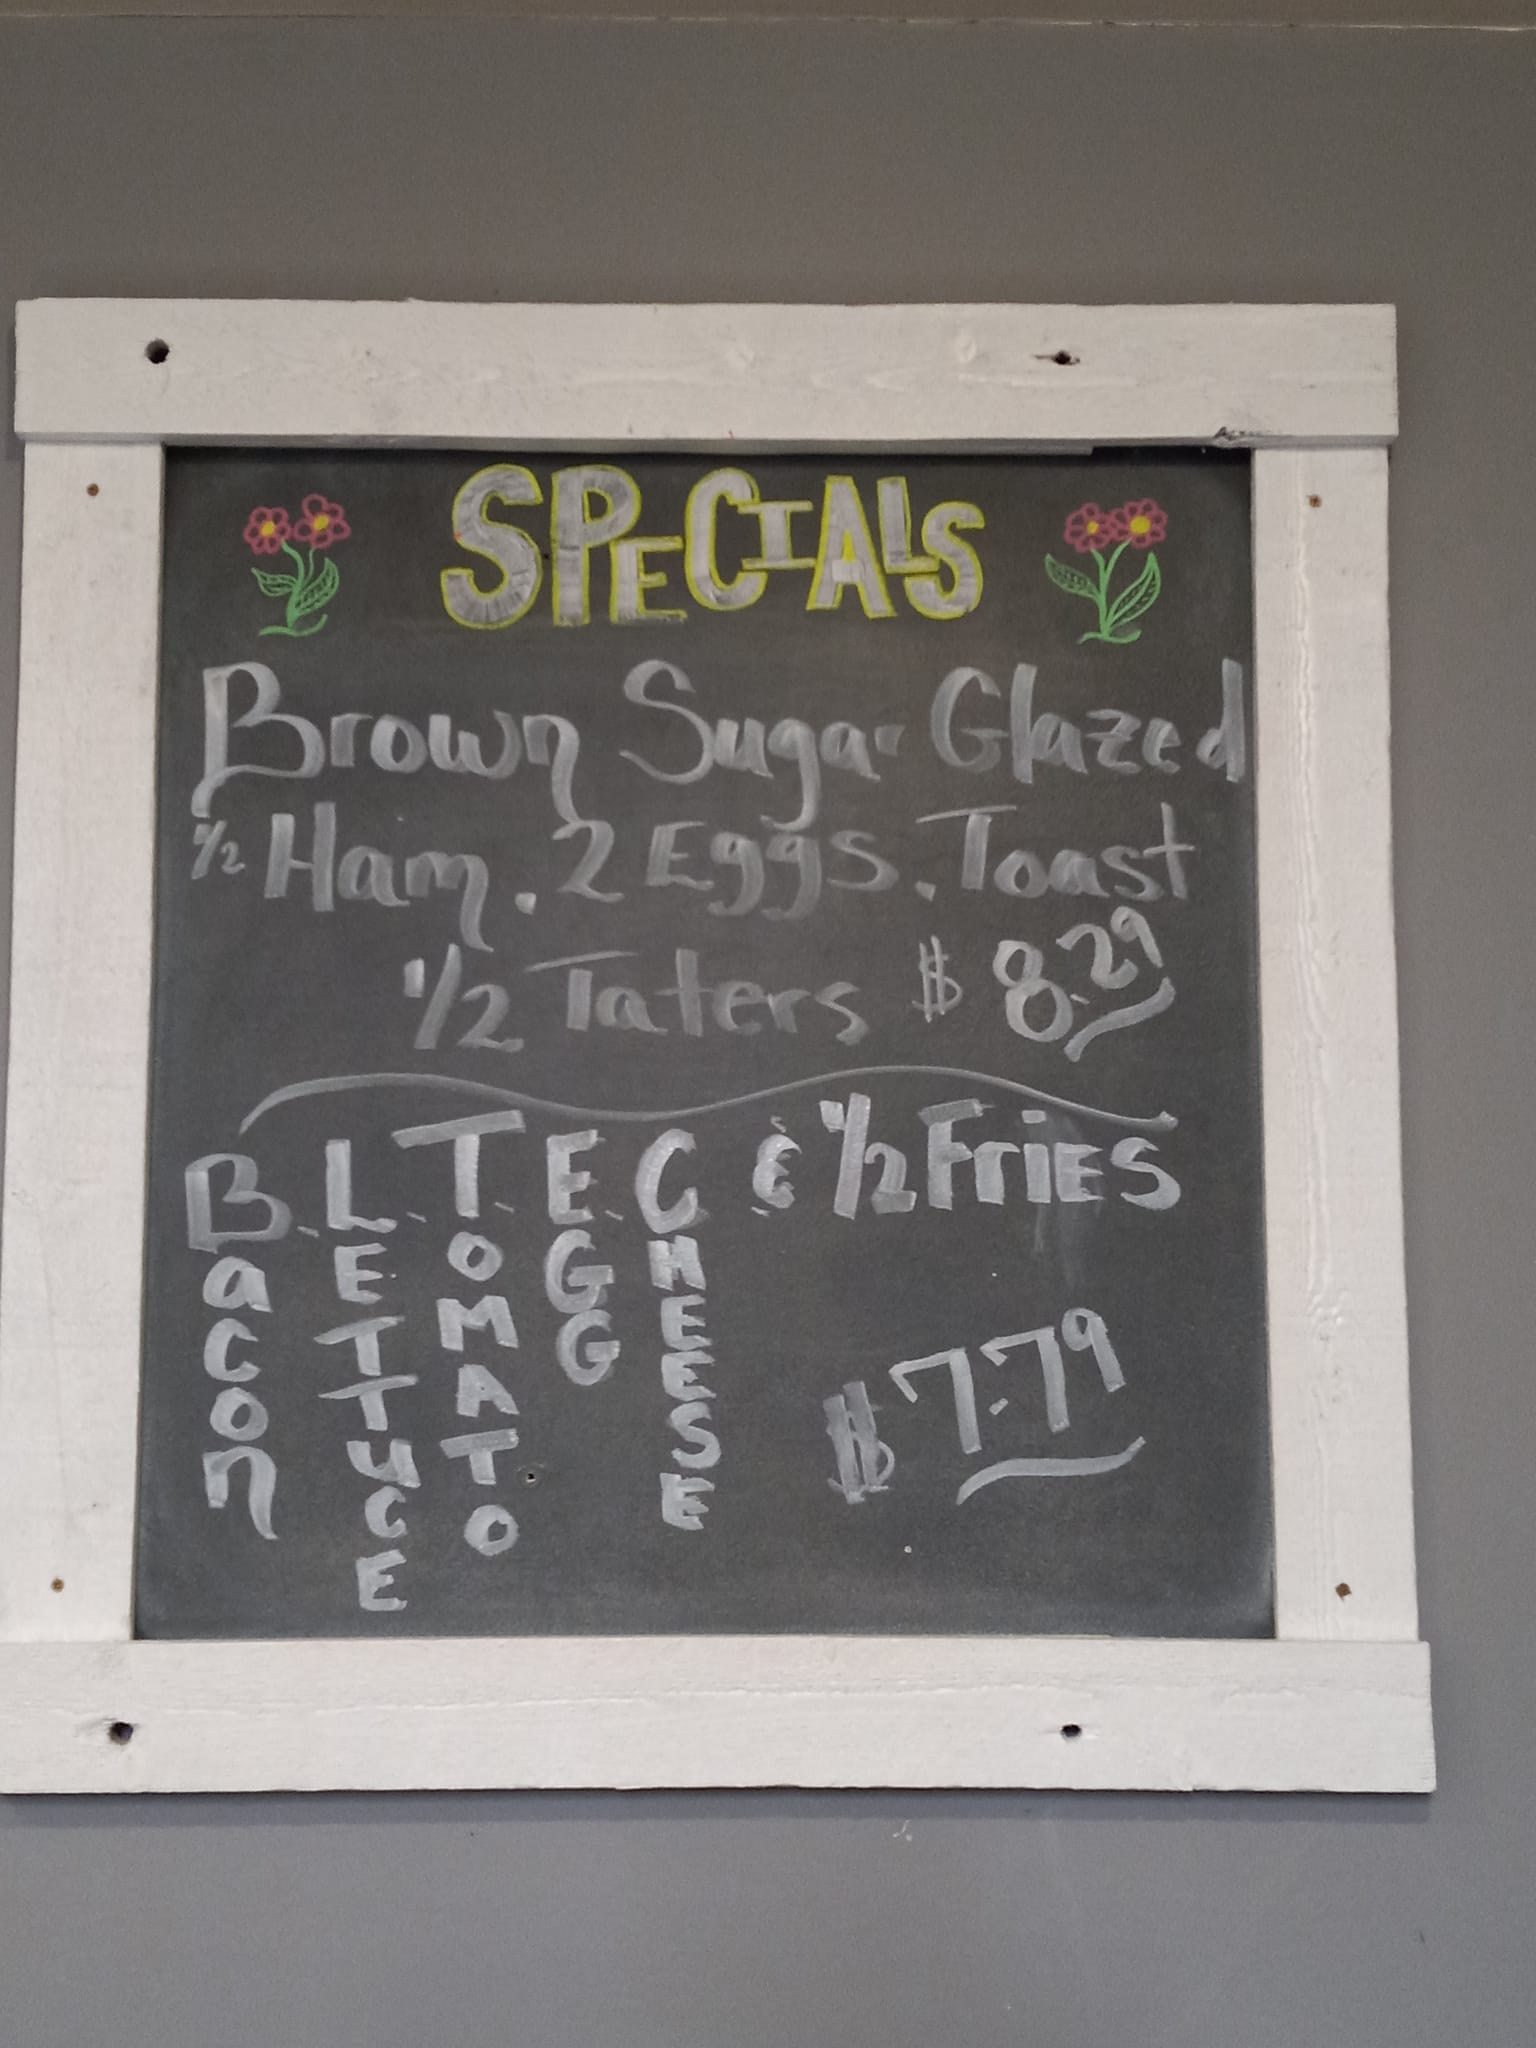 SPECIALS
Brown Sugar Glazed
1/2 Ham. 2 Eggs. Toast
1/2 Taters $ 8.29
B.L.T.E.C & 1/2 FriES
Bacon
LETTuCE
TOMATO
EGG
CHEESE
$7.79